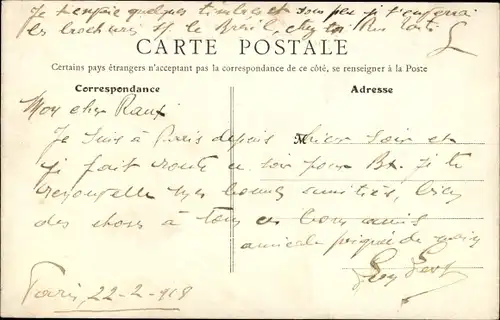 Je t'envoie quelques timbres et sous peu je t'enverrai
les brochures sur le Brésil, chez toi
CARTE POSTALE
Certains pays étrangers n'acceptant pas la correspondance de ce côté, se renseigner à la Poste
Correspondance
Adresse
Mon cher
Je suis à Paris depuis hier soir et
je fait route ce soir pour Bx. Je te
renouvelle mes bonnes amitiés, bien
des choses à tous ces bons amis
amicale poignée de main
Paris, 22-2-918